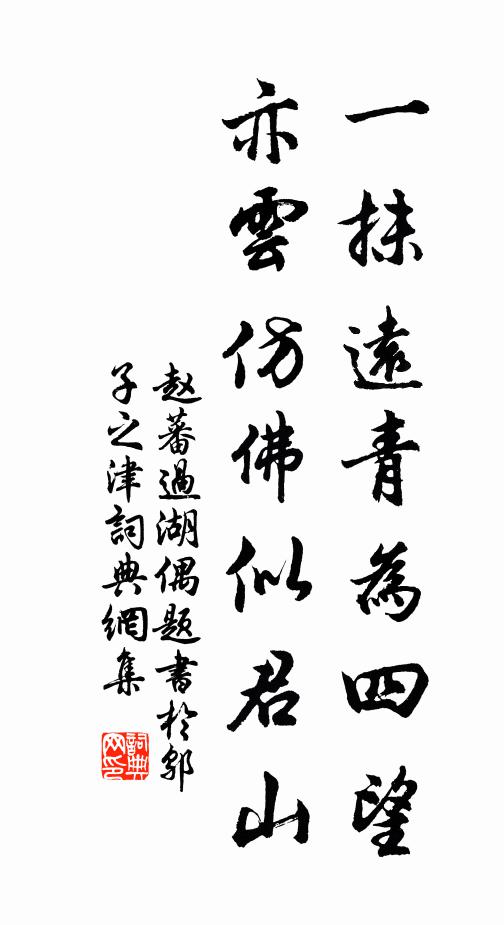 一抹遠青為四望
亦雲仿佛似君山
赵蕃過湖偶题書於鄔
子之津詞典網集
詞典
网印